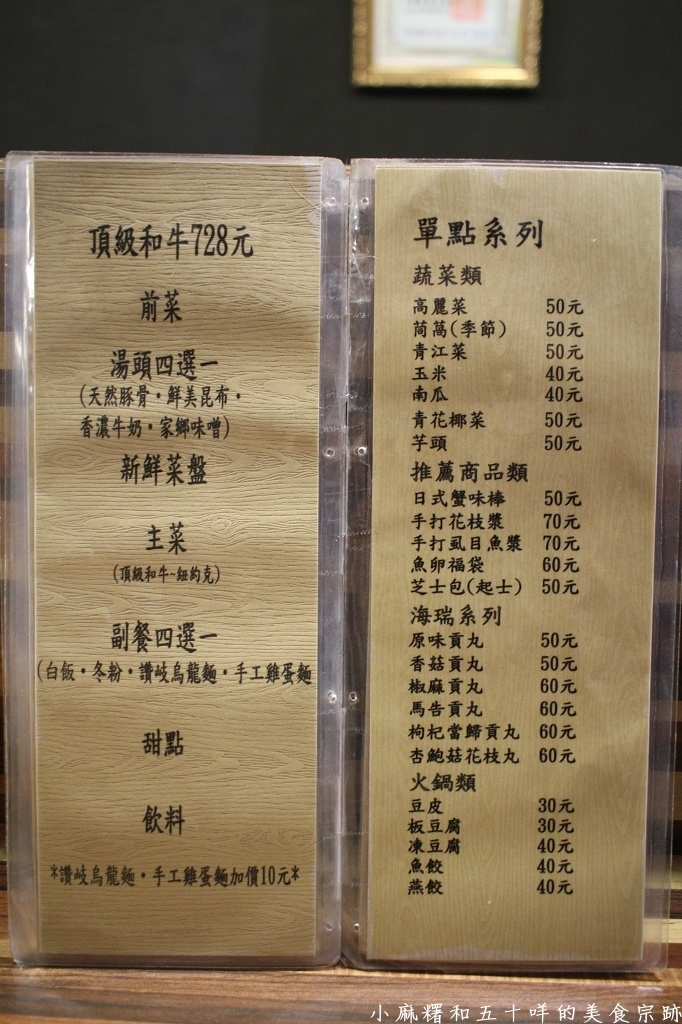 頂級和牛728元
前菜
湯頭四選一
(天然豚骨・鮮美昆布・
香濃牛奶・家鄉味噌)
新鮮菜盤
主菜
(頂級和牛~紐約克)
副餐四選一
(白飯・冬粉・讚岐烏龍麵・手工雞蛋麵
甜點
飲料
*讚岐烏龍麵・手工雞蛋麵加價10元*
單點系列
蔬菜類
高麗菜 50元
茼萵(季節) 50元
青江菜 50元
玉米 40元
南瓜 40元
青花椰菜 50元
芋頭 50元
推薦商品類
日式蟹味棒 50元
手打花枝漿 70元
手打虱目魚漿 70元
魚卵福袋 60元
芝士包(起士) 50元
海瑞系列
原味貢丸 50元
香菇貢丸 50元
椒麻貢丸 60元
馬告貢丸 60元
枸杞當歸貢丸 60元
杏鮑菇花枝丸 60元
火鍋類
豆皮 30元
板豆腐 30元
凍豆腐 40元
魚餃 40元
燕餃 40元
小麻糬和五十咩的美食宗跡